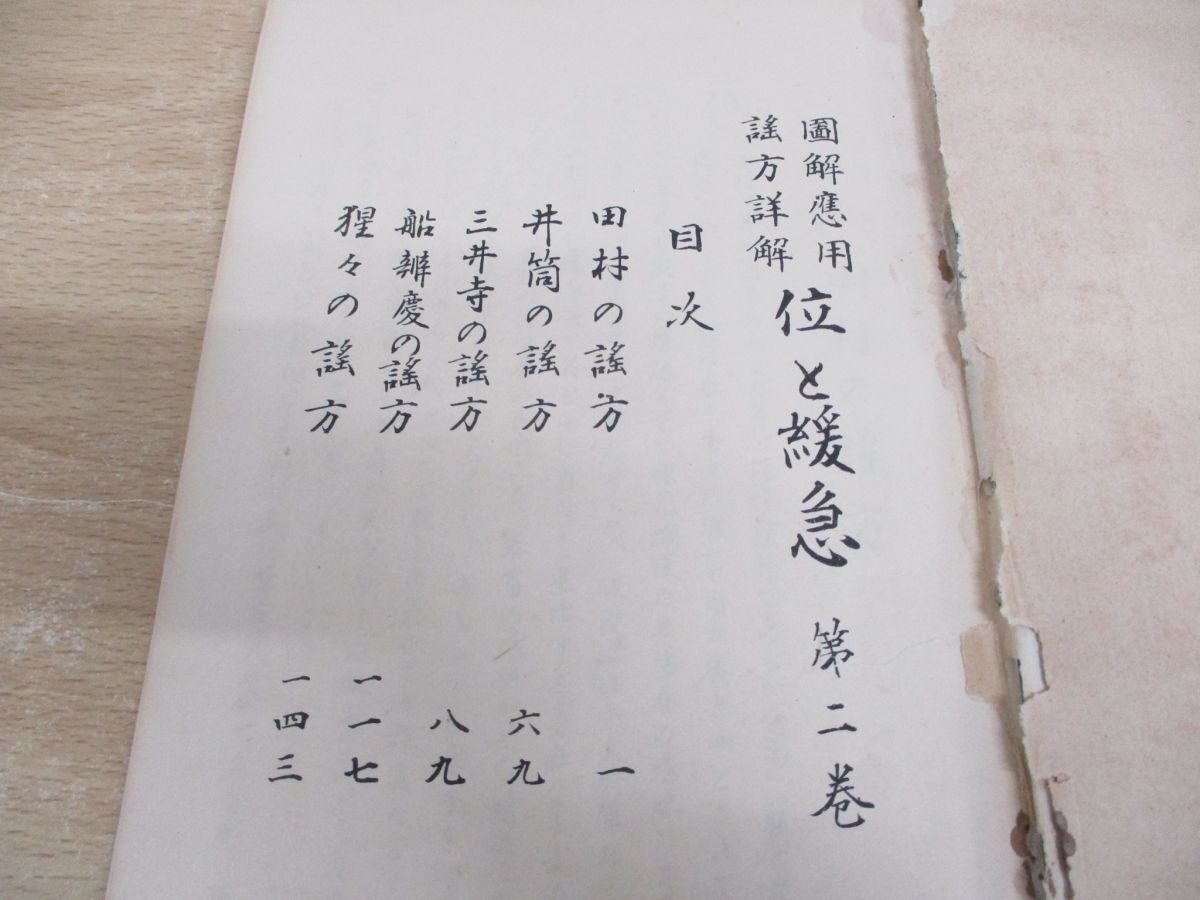 圖解應用
謠方詳解
位と緩急 第二巻
目次
田村の謠方 一
井筒の謠方 六九
三井寺の謠方 八九
船辨慶の謠方 一一七
猩々の謠方 一四三